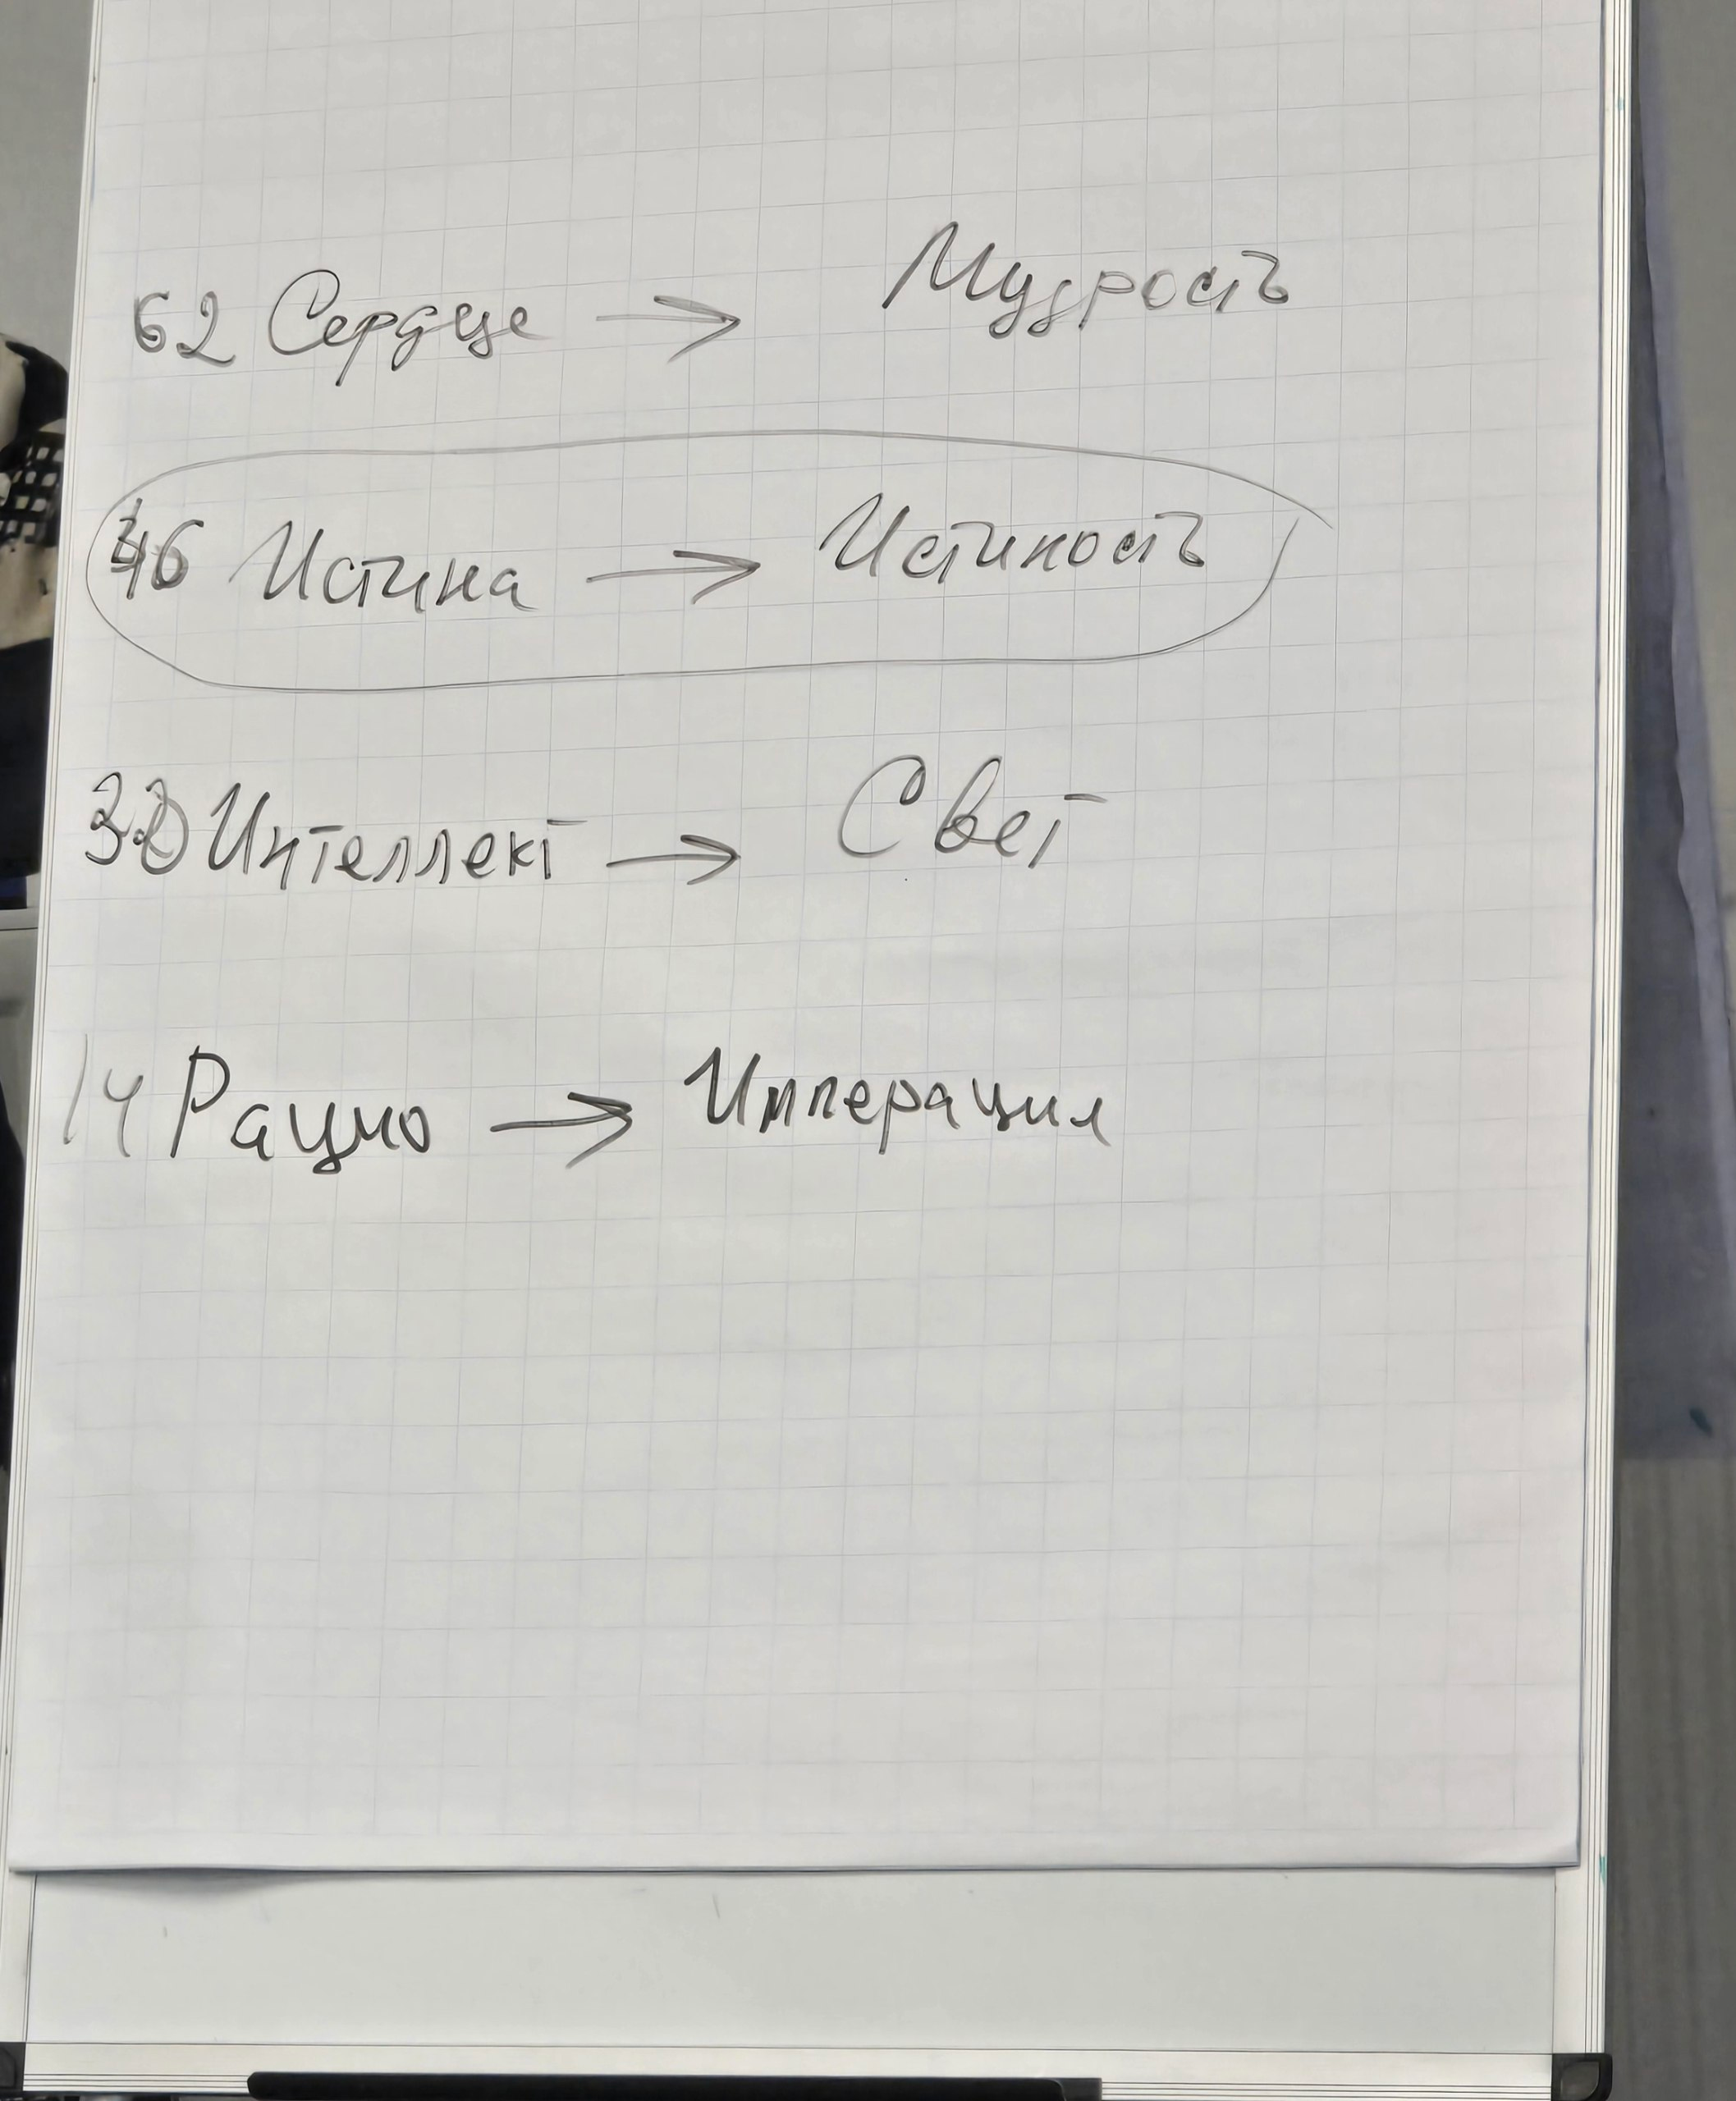 62 Сердце → Мудрость
46 Истина → Истиность
30 Интеллект → Свет
14 Рацио → Имперация